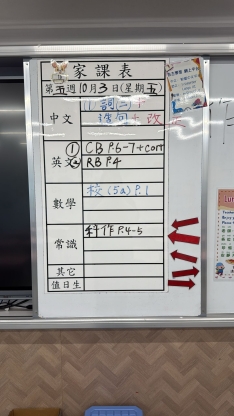 家課表
第五週10月3日(星期五)
中文 (1)詞(二)
造句+改
英文 ① CB P.6-7+corr
② RB P.4
數學 校(5a)P.1
常識 科作 P.4-5
其它
值日生